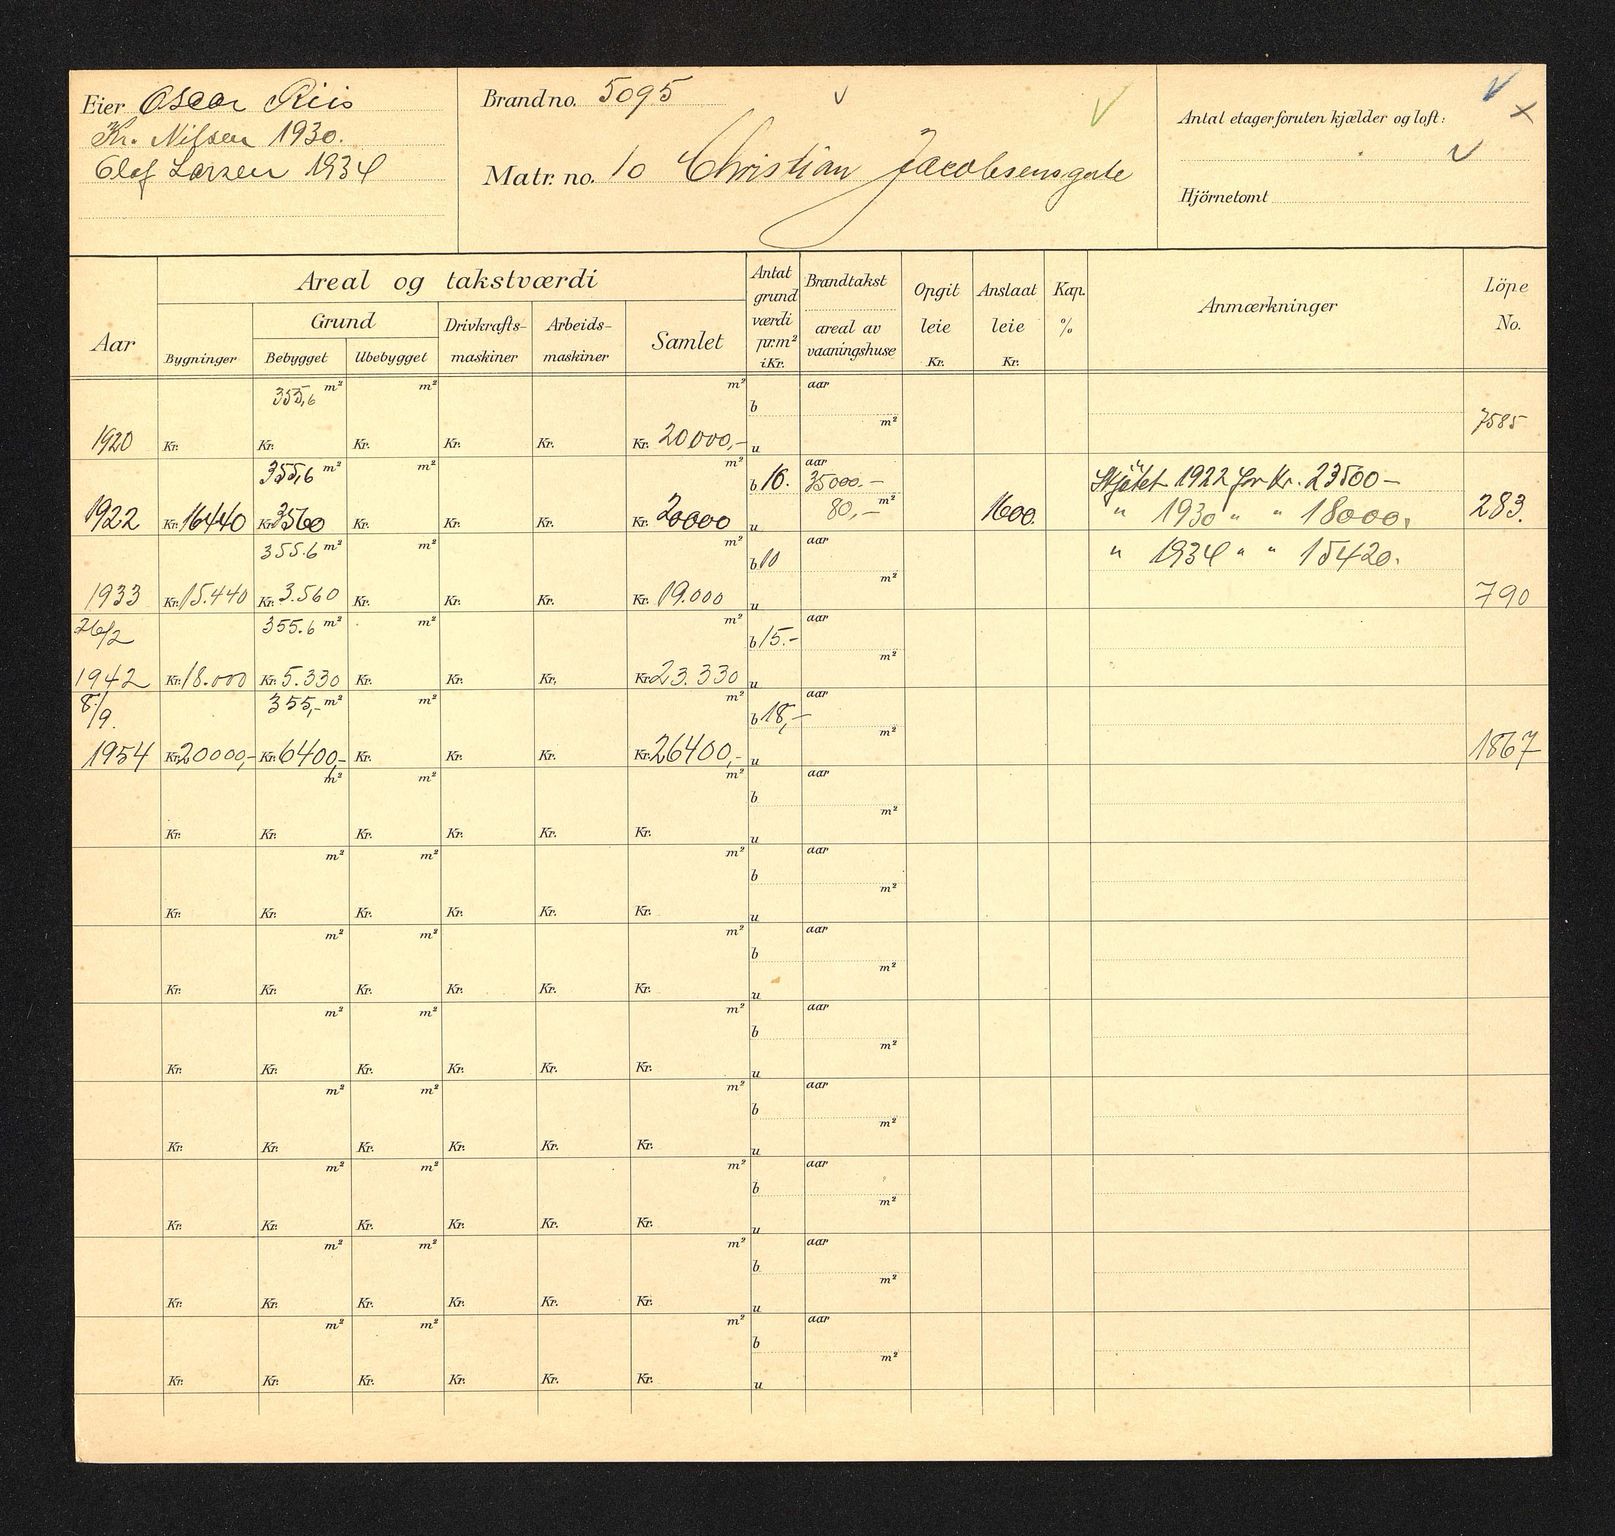 Eier Oscar Riis
Kr. Nilsen 1930.
Olaf Larsen 1934
Brandno. 5095
Matr. no. 10 Christian Jacobsensgate
Antal etager foruten kjælder og loft:
Hjörnetomt
Aar
Areal og takstværdi
Bygninger
Grund
Bebygget
Ubebygget
Drivkrafts-
maskiner
Arbeids-
maskiner
Samlet
Antat
grund
værdi
pr. m²
i Kr.
Brandtakst
areal av
vaaningshuse
Opgit
leie
Kr.
Anslaat
leie
Kr.
Kap.
%
Anmærkninger
Löpe
No.
355,6 m² m² m² b aar m²
1920 Kr. Kr. Kr. Kr. Kr. Kr. 20000,- u 7585
355,6 m² m² m² b 10. aar 35000.- Skjøtet 1922 for Kr. 23500-
1922 Kr. 16440 Kr. 3560 Kr. Kr. Kr. Kr. 20000 u 80,- m² 1600. " 1930 " " 18000, 283.
355.6 m² m² m² b 10 aar m² " 1934 " " 15420.
1933 Kr. 15.440 Kr. 3.560 Kr. Kr. Kr. Kr. 19.000 u 790
26/2 355.6 m² m² m² b 15.- aar m²
1942 Kr. 18.000 Kr. 5.330 Kr. Kr. Kr. Kr. 23.330 u
8/9. 355,- m² m² m² b 18,- aar m²
1954 Kr. 20000,- Kr. 6400,- Kr. Kr. Kr. Kr. 26400,- u 1867
m² m² m² b aar m²
Kr. Kr. Kr. Kr. Kr. Kr. u
m² m² m² b aar m²
Kr. Kr. Kr. Kr. Kr. Kr. u
m² m² m² b aar m²
Kr. Kr. Kr. Kr. Kr. Kr. u
m² m² m² b aar m²
Kr. Kr. Kr. Kr. Kr. Kr. u
m² m² m² b aar m²
Kr. Kr. Kr. Kr. Kr. Kr. u
m² m² m² b aar m²
Kr. Kr. Kr. Kr. Kr. Kr. u
m² m² m² b aar m²
Kr. Kr. Kr. Kr. Kr. Kr. u
m² m² m² b aar m²
Kr. Kr. Kr. Kr. Kr. Kr. u